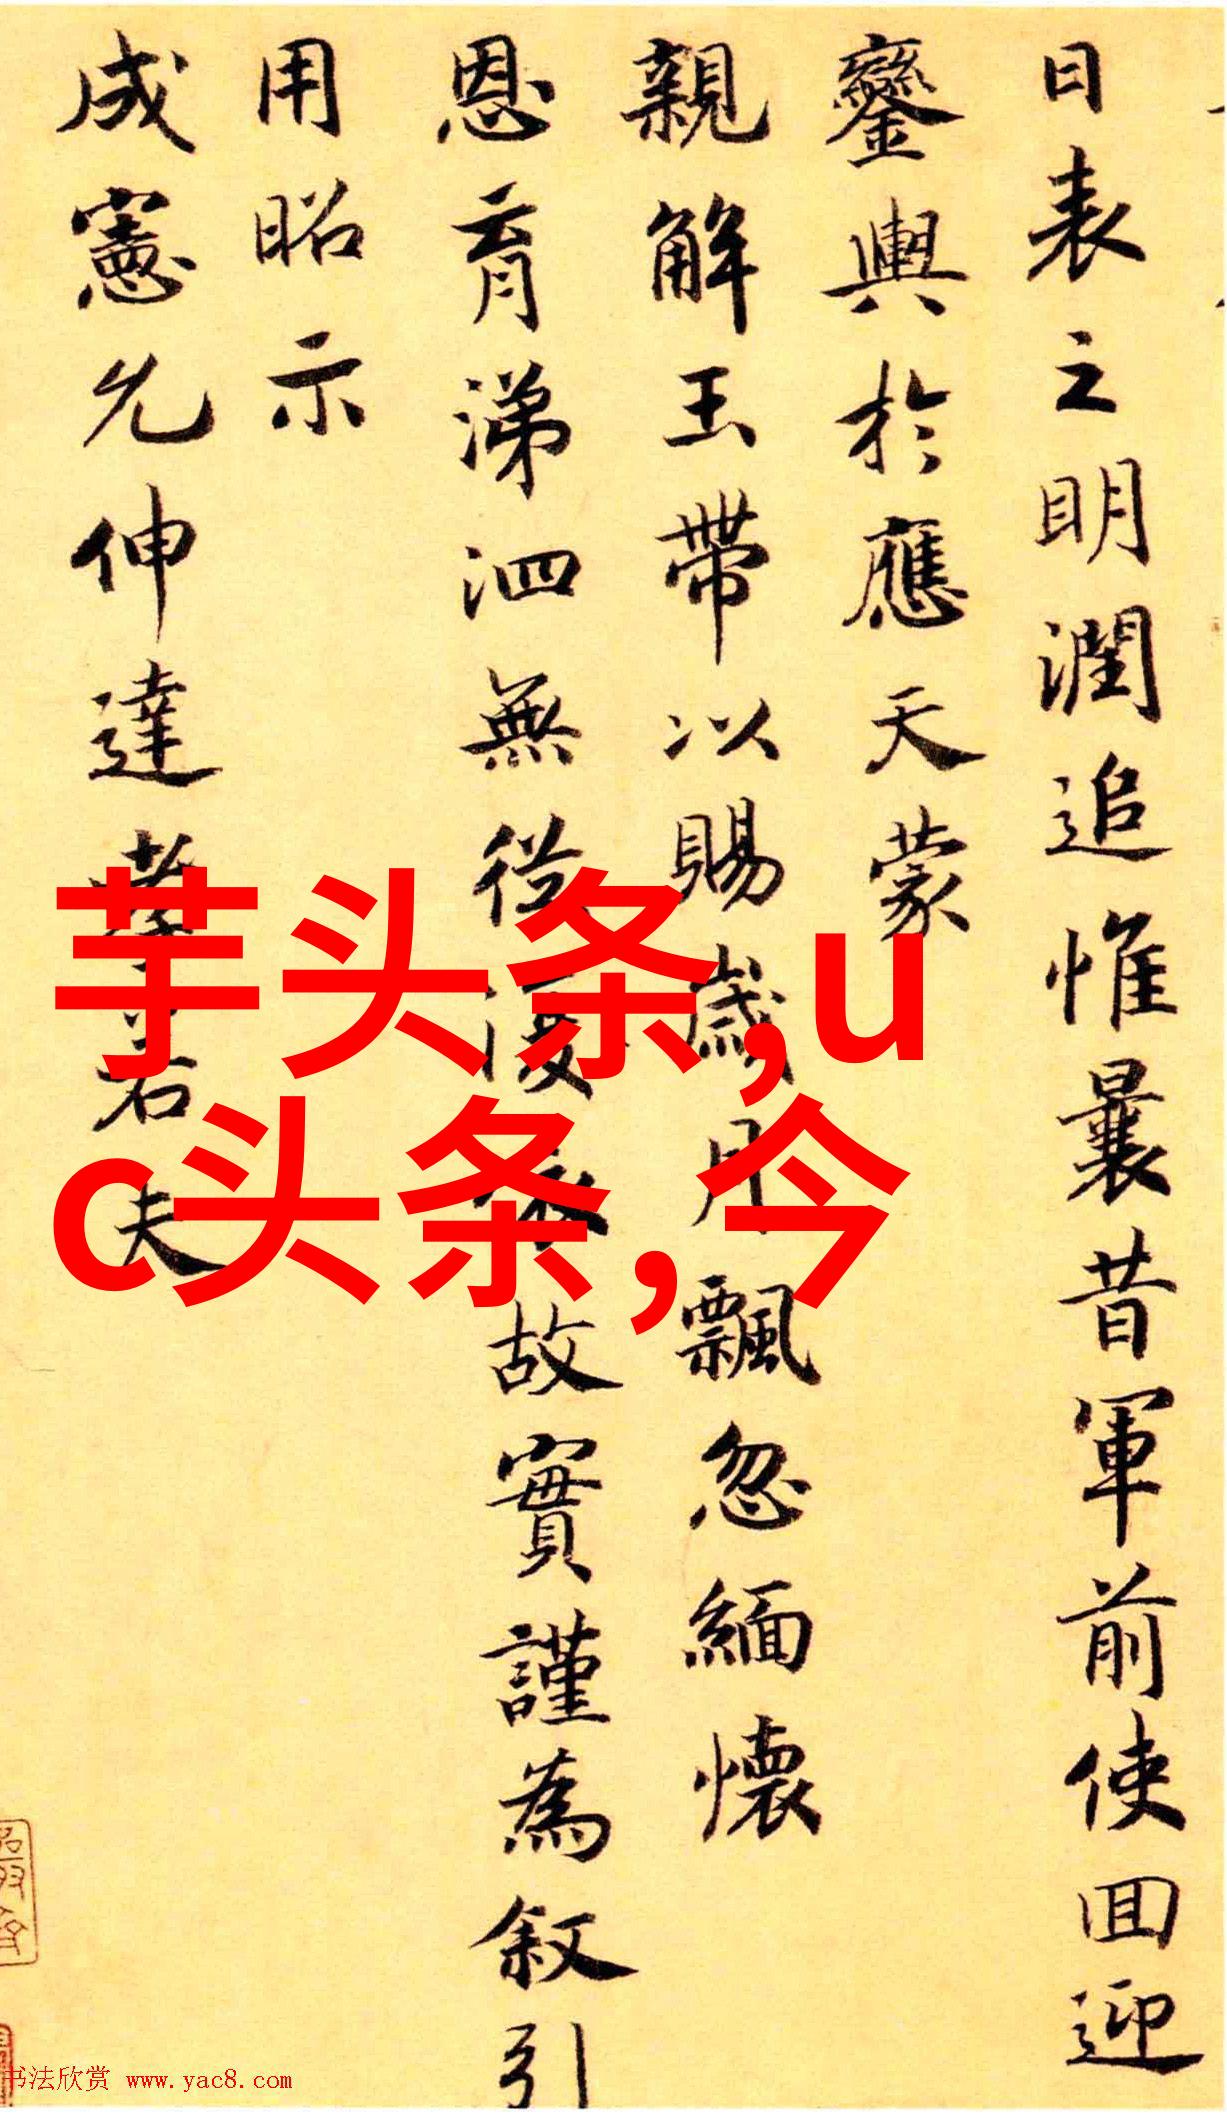 日表之明潤追惟曩昔軍前使回迎
鑾輿於應天蒙
親解玉帶以賜歲月飄忽緬懷
恩育涕泗無從復故實謹為叙引
用昭示
成憲允伸達孝若夫
芋头条,u
c头条,今
书法欣赏 www.yac8.com